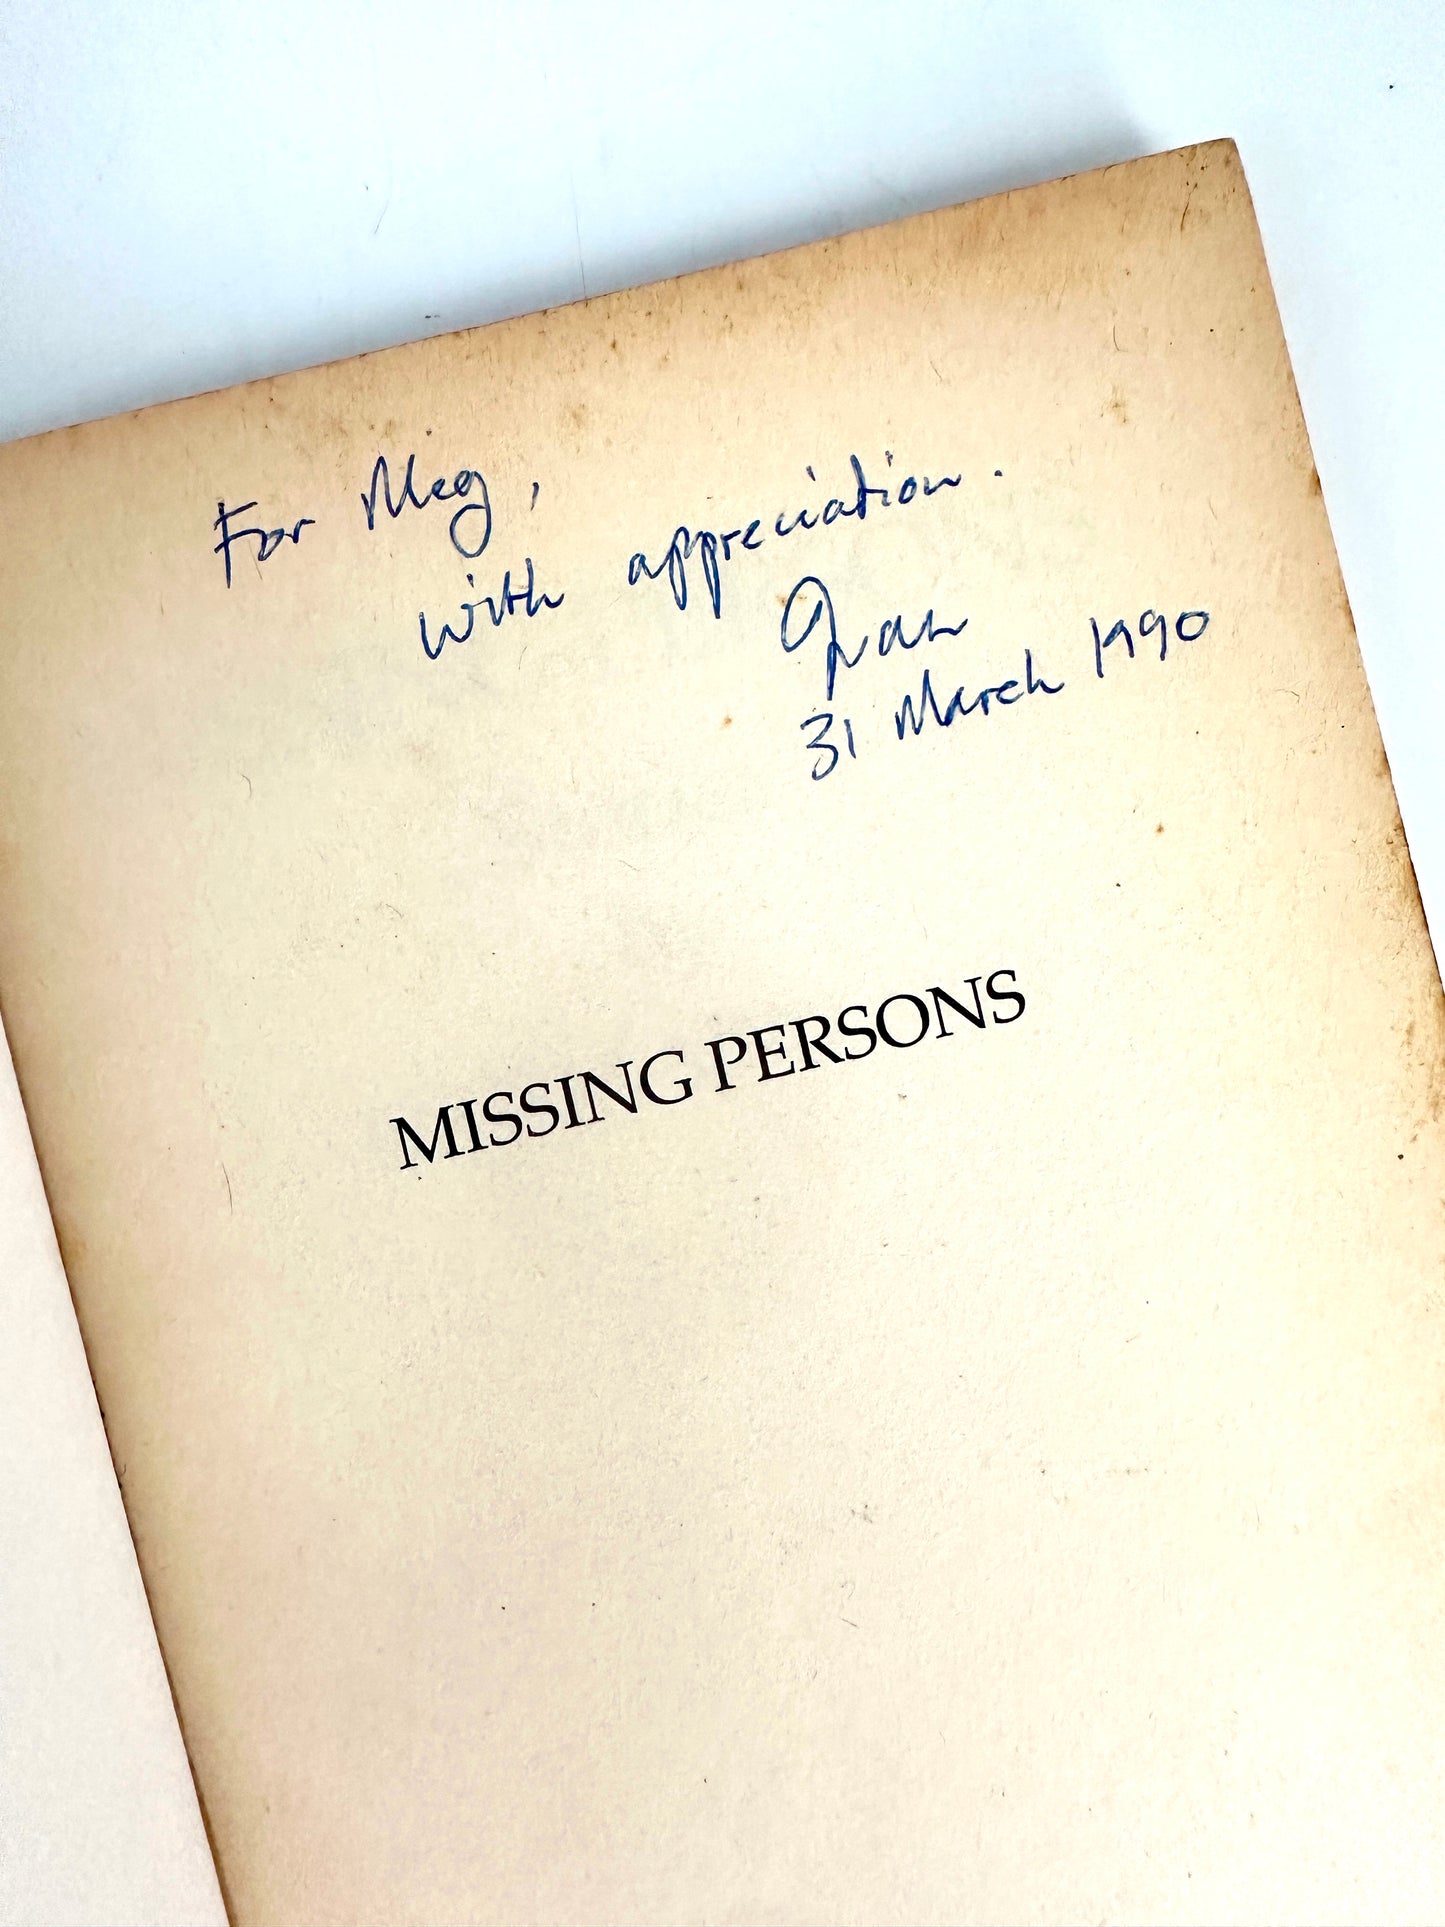 For Meg,
with appreciation.
Ivan
31 March 1990
MISSING PERSONS